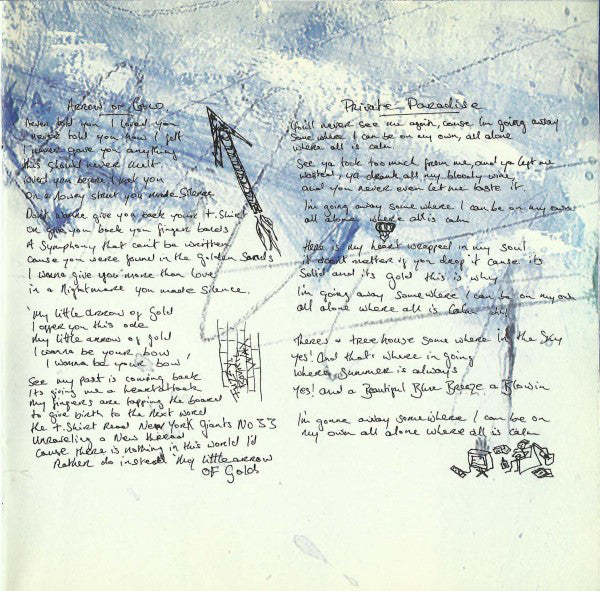 Arrow of Gold
Never told you I loved you
never told you how I felt
I never gave you anything
this should never melt
loved you before I met you
on a lonely street you made Silence
Don't wanna give you back your t-Shirt
or give you back you finger bands
A Symphony that can't be written
cause you were found in the Golden Sands
I wanna give you more than love
in a Nightmare you made Silence.
'My little arrow of Gold
I offer you this ode
My little arrow of gold
I wanna be your bow,
I wanna be your bow'
See my past is coming back
Its giving me a heart attack
My fingers are tapping the board
to give birth to the next word
the t.Shirt Read New York Giants No 33
Unraveling a New thread
cause there is nothing in this world I'd
Rather do instead 'My little arrow
of Gold's
Private Paradise
You'll never see me again, cause I'm going away
Some where I can be on my own, all alone
where all is calm.
See ya took too much from me, and ya left me
wasted, ya drank all my bloody wine,
and you never even let me taste it.
I'm going away some where I can be on my own
all alone where all is calm
Here is my heart wrapped in my soul
it don't matter if you drop it cause its
Solid and its Gold this is why
I'm going away somewhere I can be on my own
all alone where all is calm
Theres a tree house some where in the Sky
Yes! And thats where im going
Where Summer is always
Yes! and a Beautiful Blue Breeze a Blowin
I'm gonna away somewhere I can be on
my own all alone where all is calm